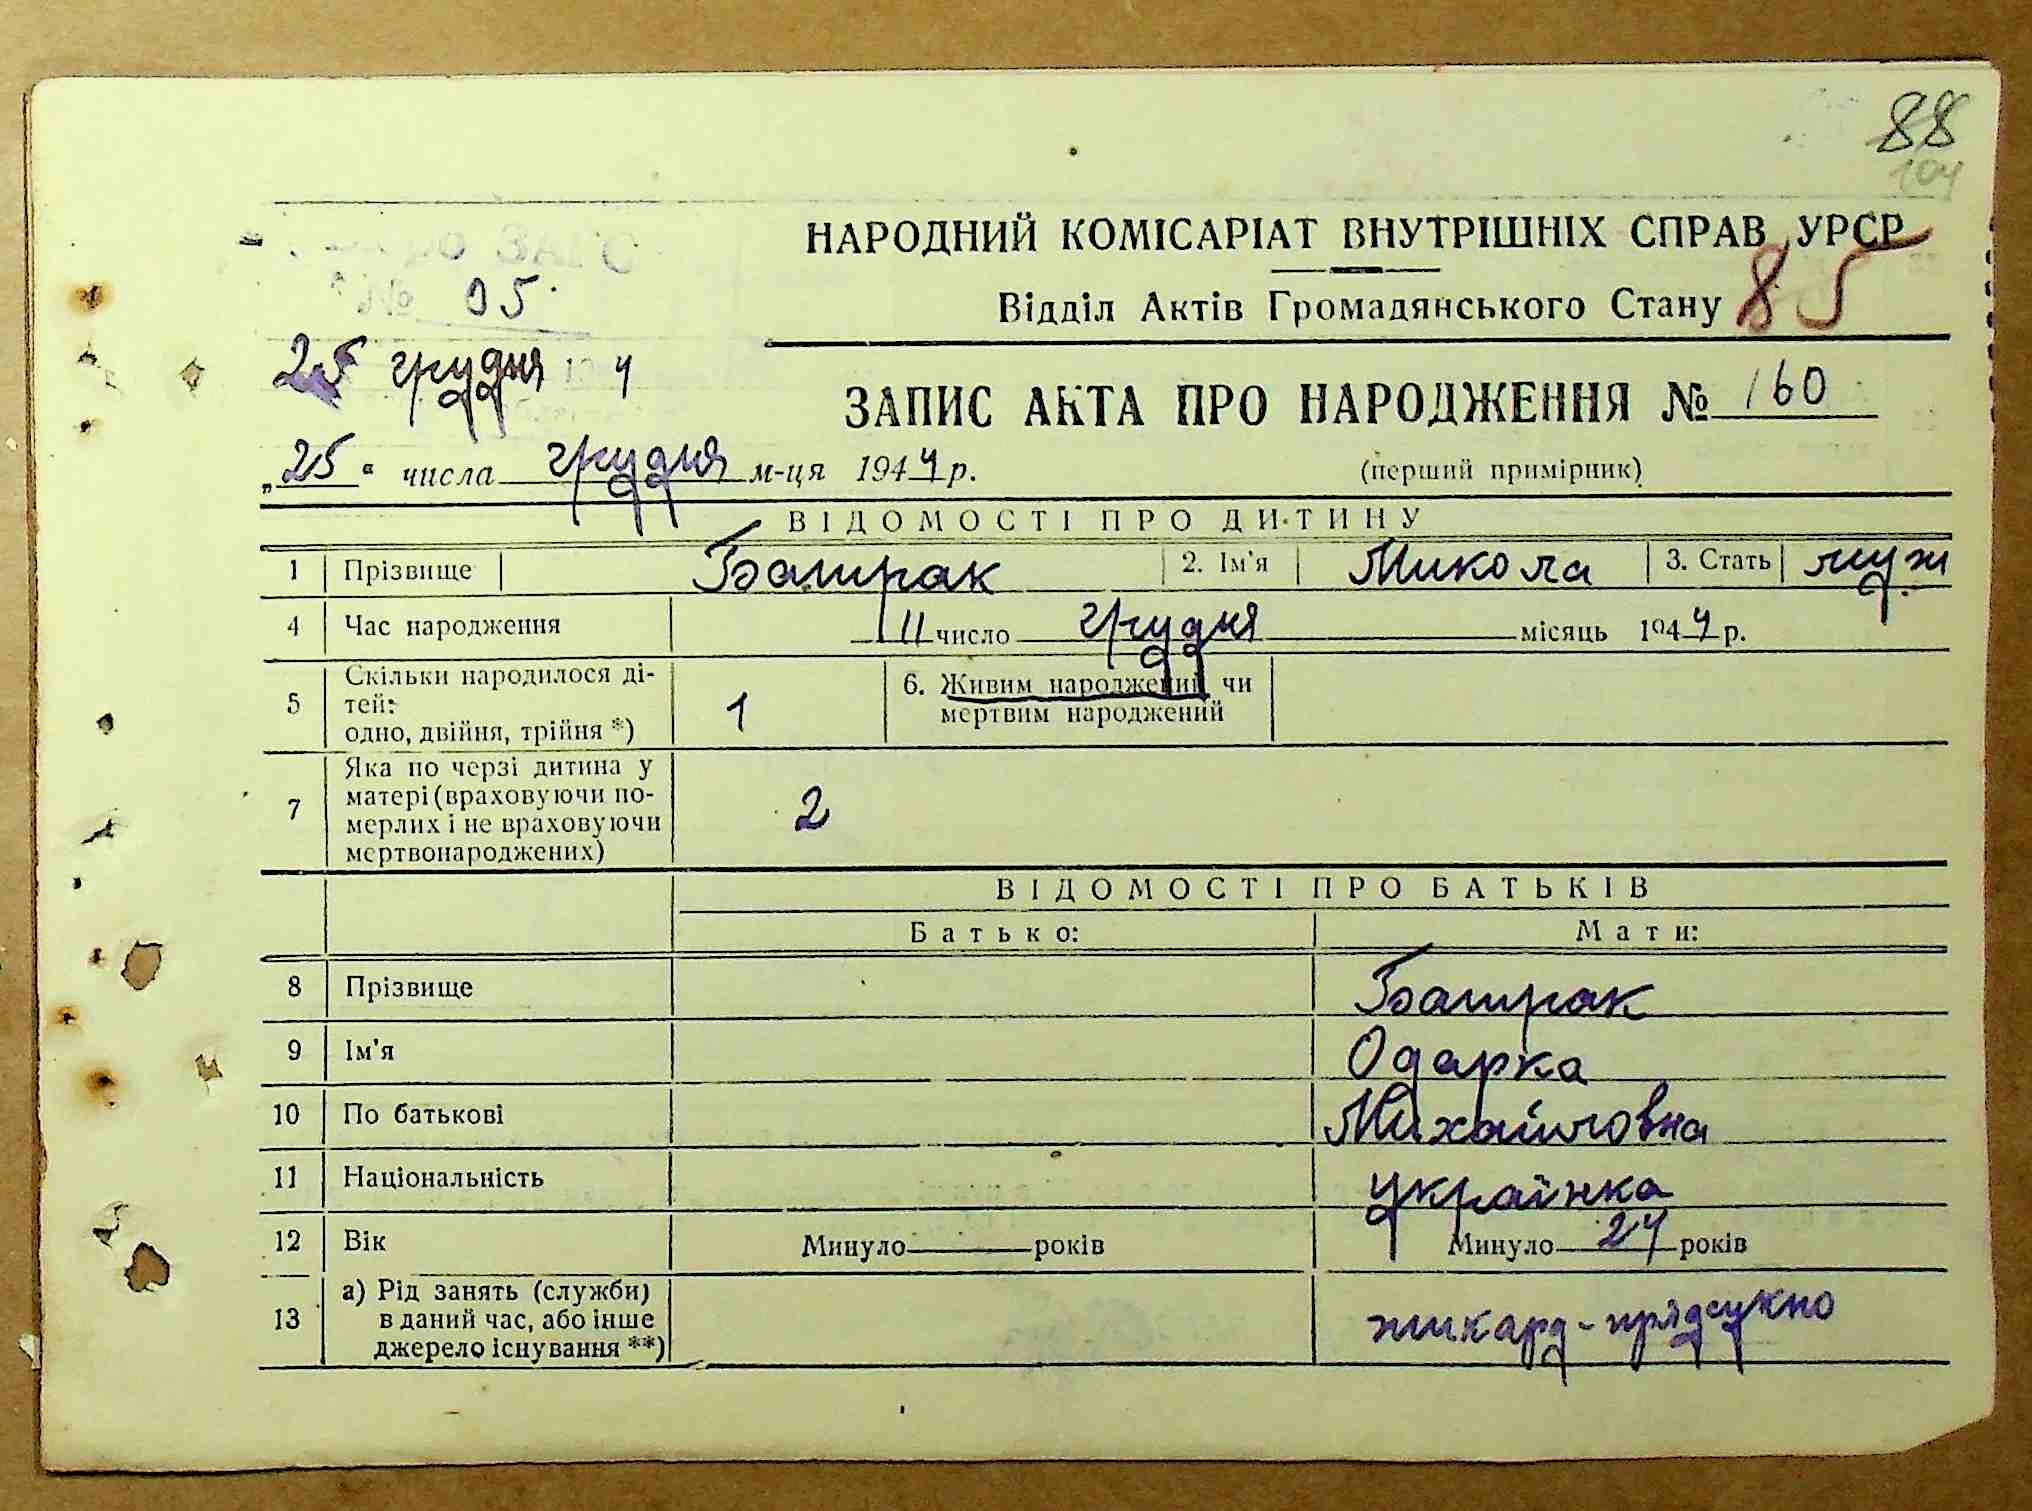 88
104
НАРОДНИЙ КОМІСАРІАТ ВНУТРІШНІХ СПРАВ УРСР
Відділ Актів Громадянського Стану 85
ЗАГС
№ 95
25 грудня 194 4
ЗАПИС АКТА ПРО НАРОДЖЕННЯ № 160
„25“ числа грудня м-ця 1944 р.
(перший примірник)
ВІДОМОСТІ ПРО ДИТИНУ
1 Прізвище Батрак 2. Ім'я Микола 3. Стать муж.
4 Час народження 11 число грудня місяць 1944 р.
5 Скільки народилося ді-
тей:
одно, двійня, трійня *) 1
6. Живим народжений чи
мертвим народжений
7 Яка по черзі дитина у
матері (враховуючи по-
мерлих і не враховуючи
мертвонароджених) 2
ВІДОМОСТІ ПРО БАТЬКІВ
Батько: Мати:
8 Прізвище Батрак
9 Ім'я Одарка
10 По батькові Михайловна
11 Національність українка
12 Вік Минуло років Минуло 24 років
13 а) Рід занять (служби)
в даний час, або інше
джерело існування **)